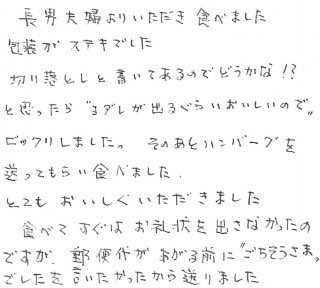 長男夫婦よりいただき食べました
包装がステキでした
切り落としと書いてあるのでどうかな!?
と思ったら"ヨダレが出るぐらいおいしいので"
ビックリしました。そのあとハンバーグを
送ってもらい食べました.
とても おいしくいただきました
食べて すぐは お礼状を出さなかったの
ですが、郵便代が あがる前に"ごちそうさま"
でしたを言いたかったから送りました